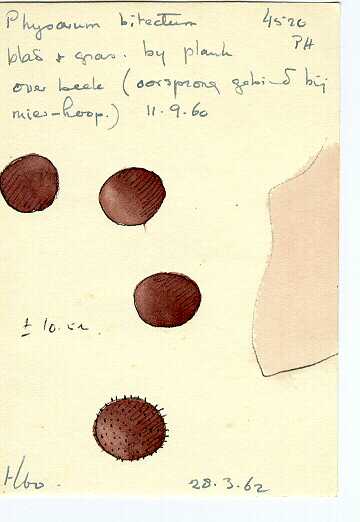 Physarum bitectum 4520
PH
blad & gras. by plank
over beek (oorsprong gebied bij
mier-hoop.) 11.9.60
± 10.
28.3.62